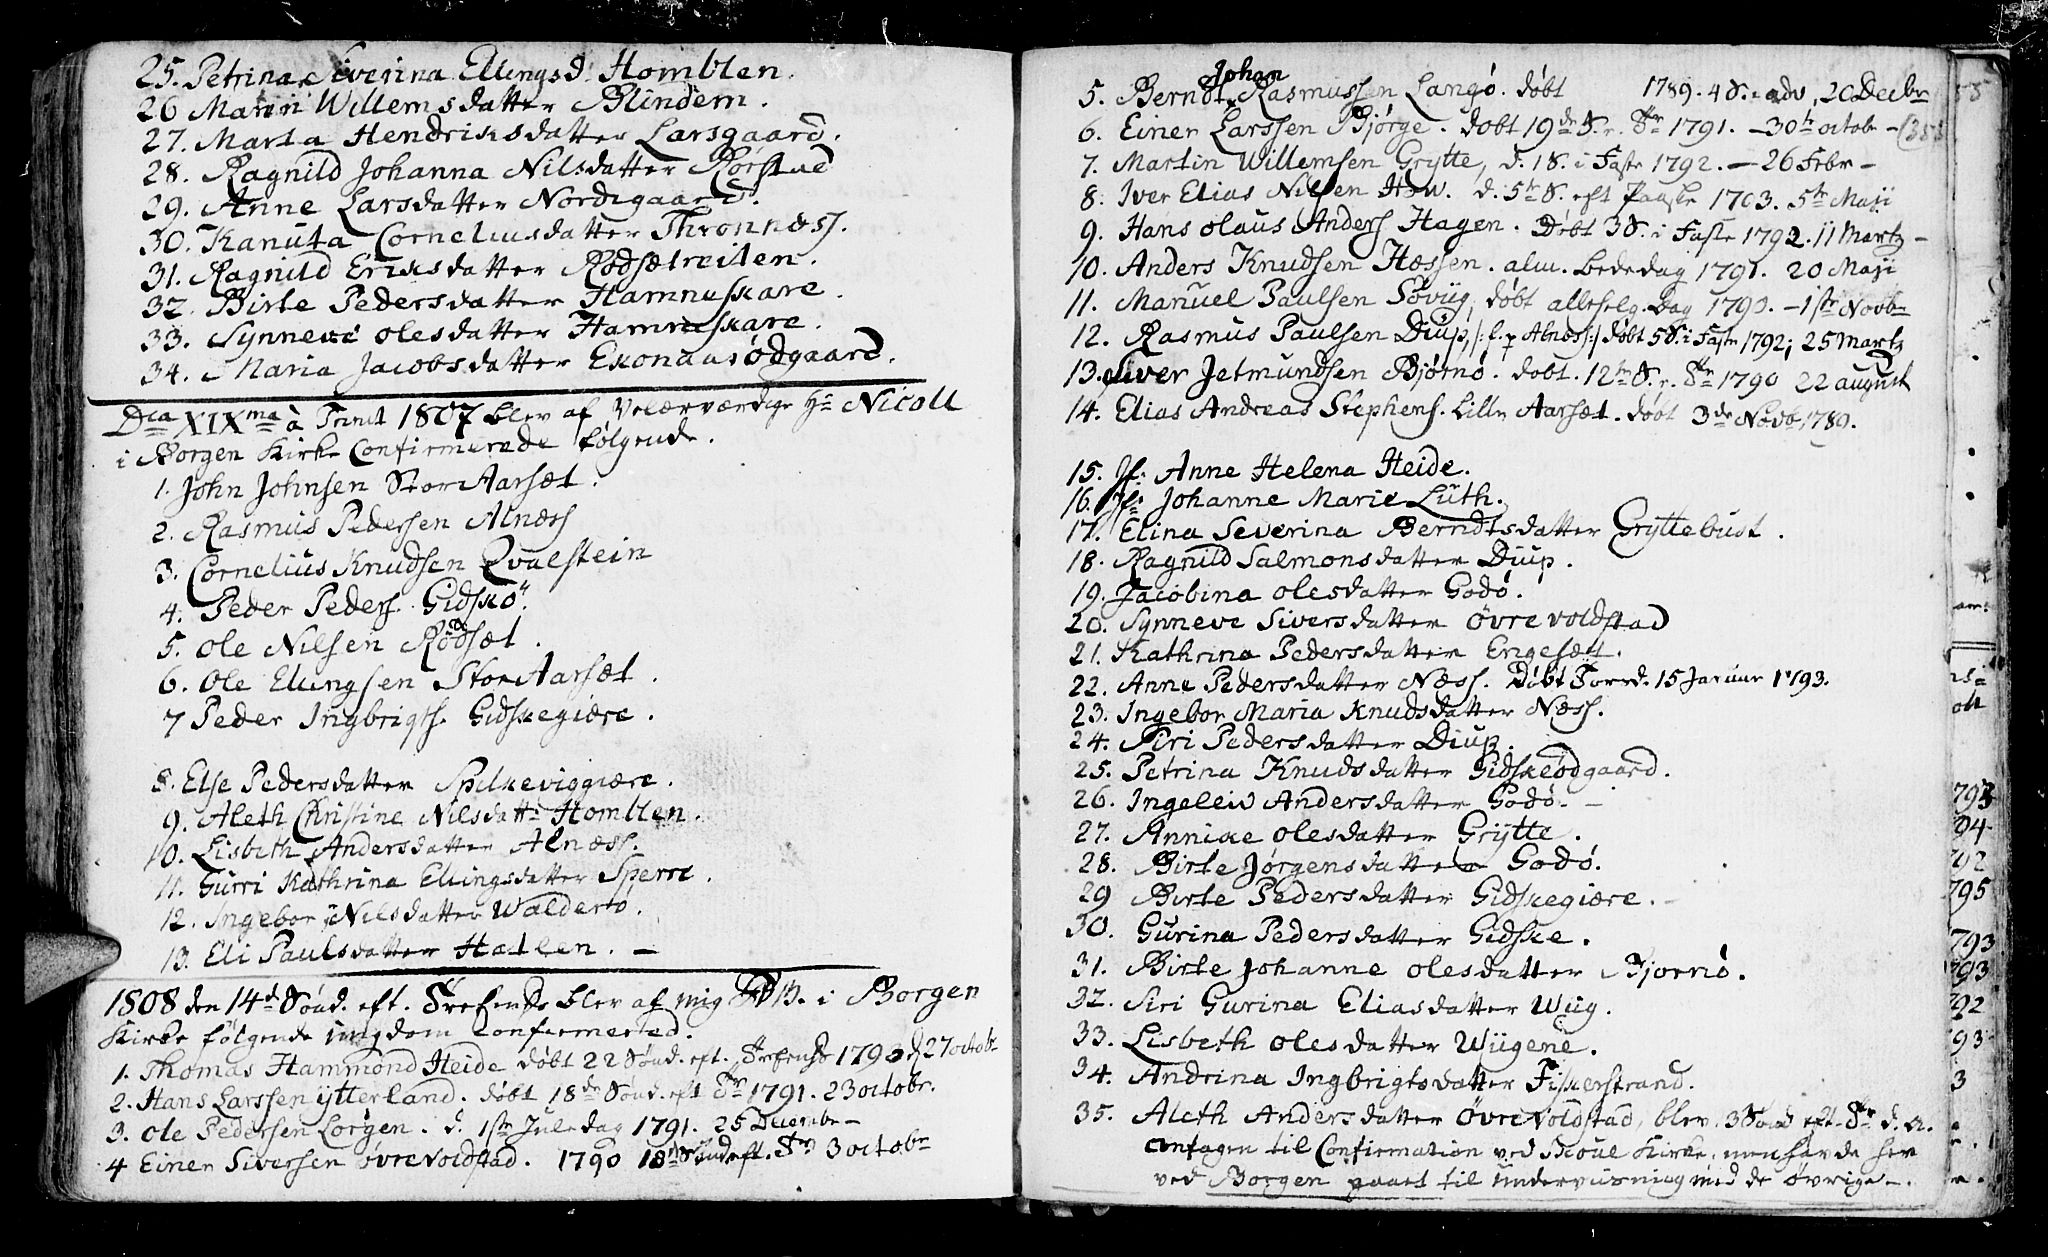 25. Petrina Siverina Ellingsd. Homblen.
26 Marin Willemsdatter Blindem.
27. Marta Hendriksdatter Larsgaard.
28. Ragnild Johanna Nilsdatter Rørstad
29. Anne Larsdatter Nordigaard.
30. Kanuta Corneliusdatter Thronnæss.
31. Ragnild Eriksdatter Rødsætreiten.
32. Birte Pedersdatter Hamneskare.
33. Synneve olesdatter Hamneskare.
34. Maria Jacobsdatter Exonaasødgaard.
Dca XIXma à Trinit 1807 blev af Velærværdige Hr Nicoll
i Borgen Kirke Confirmerede følgende.
1. John Johnsen Stor Aarsæt.
2. Rasmus Pedersen Alnæss
3. Cornelius Knudsen Qvalstein
4. Peder Peders. Gidskø.
5. Ole Nilsen Rødsæt.
6. Ole Ellingsen Stor Aarsæt.
7 Peder Ingbrigts. Gidskegiære.
8. Else Pedersdatter Spilkeviggiære.
9. Aleth Christine Nilsdatt. Homblen.
10. Lisbeth Andersdatter Alnæss.
11. Gurri Kathrina Ellingsdatter Sperre.
12. Ingebor Nilsdatter Walderø.
13. Eli Paulsdatter Hatlen. —
1808 den 14de Sønd. eft. Trefends blev af mig i Borgen
Kirke følgende ungdom confirmered.
1. Thomas Hammond Heide døbt 22 Sønd. eft. Trefends 1793 d 27 octobr
2. Hans Larssen ytterland. døbt 18de Sønd. eft Tr 1791. 23 octobr.
3. Ole Pedersen Lorgen. d. 1ste Juledag 1791. 25 Decembr—
4 Einer Siversen øvre voldstad. 1790 18de Sønd eft. Tr 3 octobr
5. Berndt Johan Rasmussen Langø. døbt 1789. 4 S. adv. 20 Decbr
6. Einer Larssen Bjørge. døbt 19de S. Tr 1791. — 30te octob —
7. Martin Willemsen Grytte, d. 1 S. i Faste 1792. — 26 Febr —
8. Iver Elias Nilsen How. d. 5te S. eft Paaske 1793. 5te Maji
9. Hans olaus Anders Hagen. Døbt 3 S. i Faste 1792. 11 Martz —
10. Anders Knudsen Hessen. alm. bededag 1791. 20 Maji
11. Manuel Paulsen Søvüg, døbt allehelg. Dag 1790. — 1ste Novb—
12. Rasmus Paulsen Diup, /: f. p Alnæss:/ døbt 5 S. i Faste 1792; 25 Martz
13. Siver Jetmundsen Bjørnø. døbt. 12te S. Tr 1790 22 august
14. Elias Andreas Stephens. Lille Aarsæt. døbt 3de Novb. 1789.
15. Jf. Anne Helena Heide.
16. Jf. Johanne Marie Lüth.
17. Elina Severina Berndtsdatter Gryttebust.
18. Ragnild Salmonsdatter Diup.
19. Jacobina olesdatter Godø.
20. Synneve Siversdatter øvre voldstad
21. Kathrina Pedersdatter Engesæt.
22. Anne Pedersdatter Næss. Døbt Torsd. 15 Januar 1793.
23. Ingebor Maria Knudsdatter Næss.
24. Siri Pedersdatter Diup.
25. Petrina Knudsdatter Gidskeødgaard.
26. Ingeleiv Andersdatter Godø. —
27. Annike olesdatter Grytte.
28. Birte Jørgensdatter Godø.
29 Birte Pedersdatter Gidskegiære. —
30. Gurina Pedersdatter Gidske.
31. Birte Johanne olesdatter Bjornø.
32. Siri Gurina Eliasdatter Wüg.
33. Lisbeth olesdatter Wügene.
34. Andrina Ingbrigtsdatter Fiskerstrand.
35. Aleth Andersdatter øvre voldstad, blev 3 Sønd eft. Tr. d. A.
antagen til Confirmation ved Skoue Kirke, men havde her
ved Borgen gaaet til undervisning med de øvrige —.